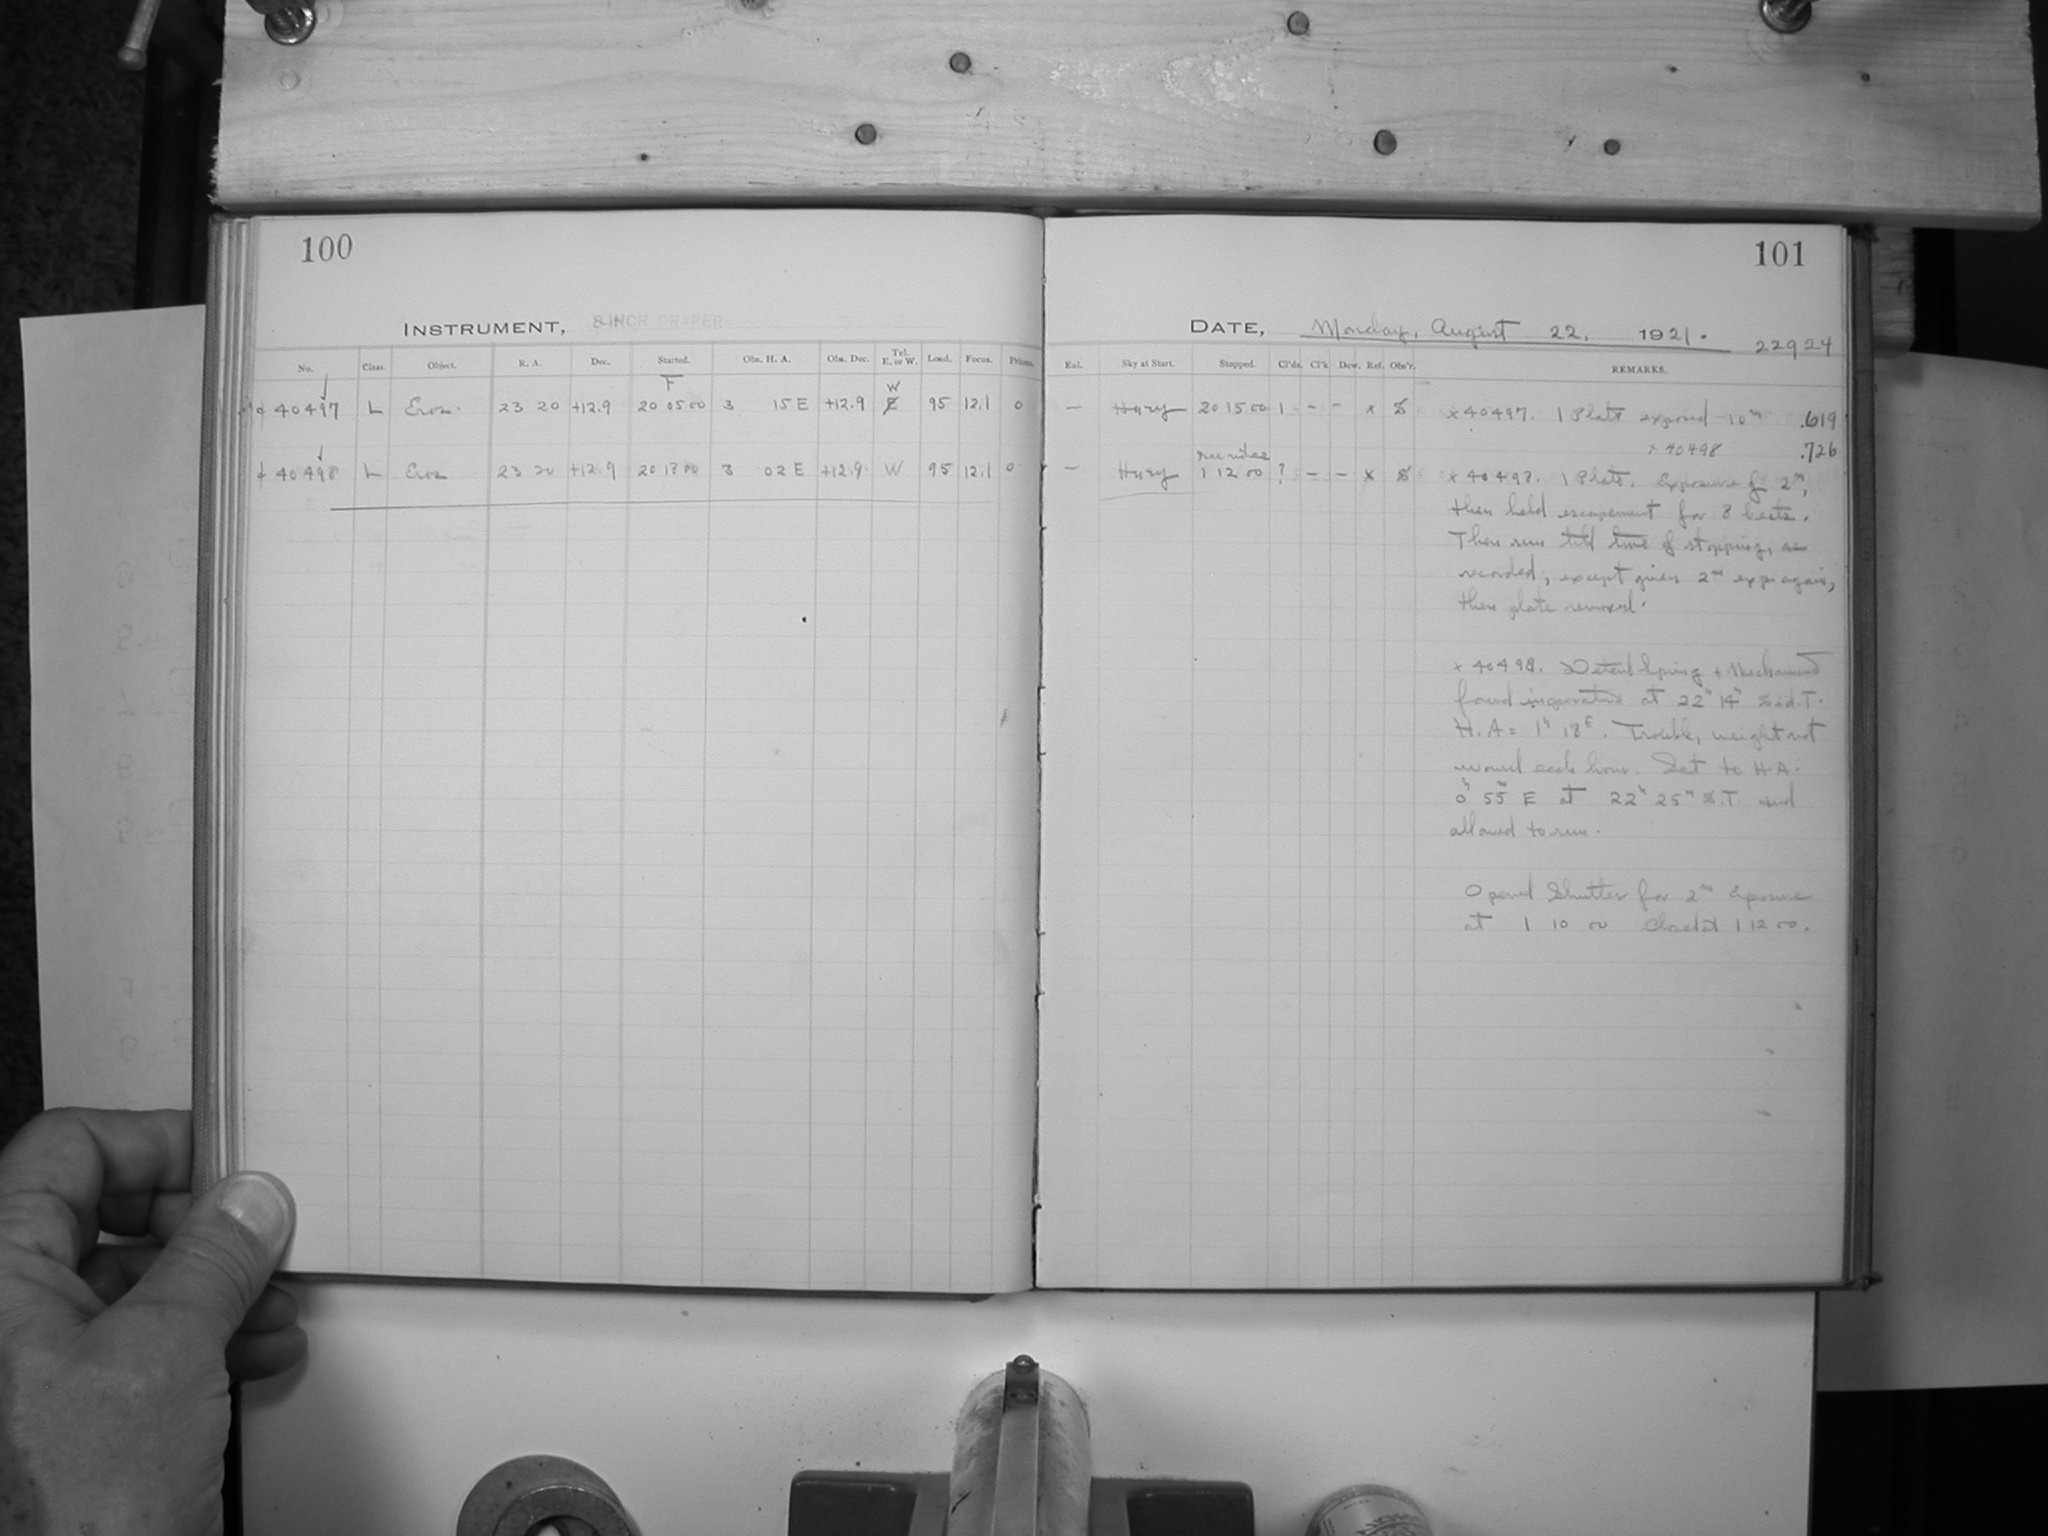 100
INSTRUMENT, 8-INCH DRAPER
No. Class. Object. R. A. Dec. Started. Obs. H. A. Obs. Dec. Tel. E. or W. Load. Focus. Prisms.
F W
40497 L Eros. 23 20 +12.9 20 05 00 3 15 E +12.9 E 95 12.1 0
40498 L Eros 23 20 +12.9 20 18 00 3 02 E +12.9 W 95 12.1 0
101
DATE, Monday, August 22, 1921. 22924
Sky at Start. Stopped. Cl'ds. Cl'k Dew. Ref. Obs'r. REMARKS.
— Hazy 20 15 00 1 – – x S x 40497. 1 Plate exposed 10m .619
x 40498 .726
— Hazy 1 12 00 ? – – x S x 40498. 1 Plate. Exposure of 2m,
then held escapement for 8 beats.
Then run till time of stopping, as
recorded; except given 2m exp. again,
then plate removed.
x 40498. Detent Spring + Mechanism
found inoperative at 22h 14m Sid. T.
H. A = 1h 18E. Trouble, weight not
wound each hour. Set to H.A.
0h 55m E at 22h 25m S.T. and
allowed to run.
Opened Shutter for 2m Exposure
at 1 10 00 Closed at 1 12 00.